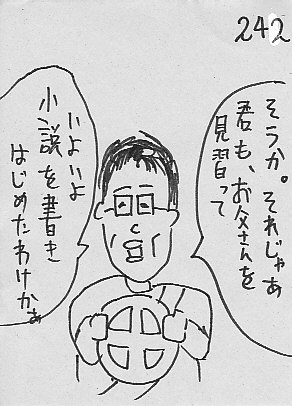 242
そうか。それじゃあ
君も、お父さんを
見習って
いよいよ
小説を書き
はじめたわけかぁ